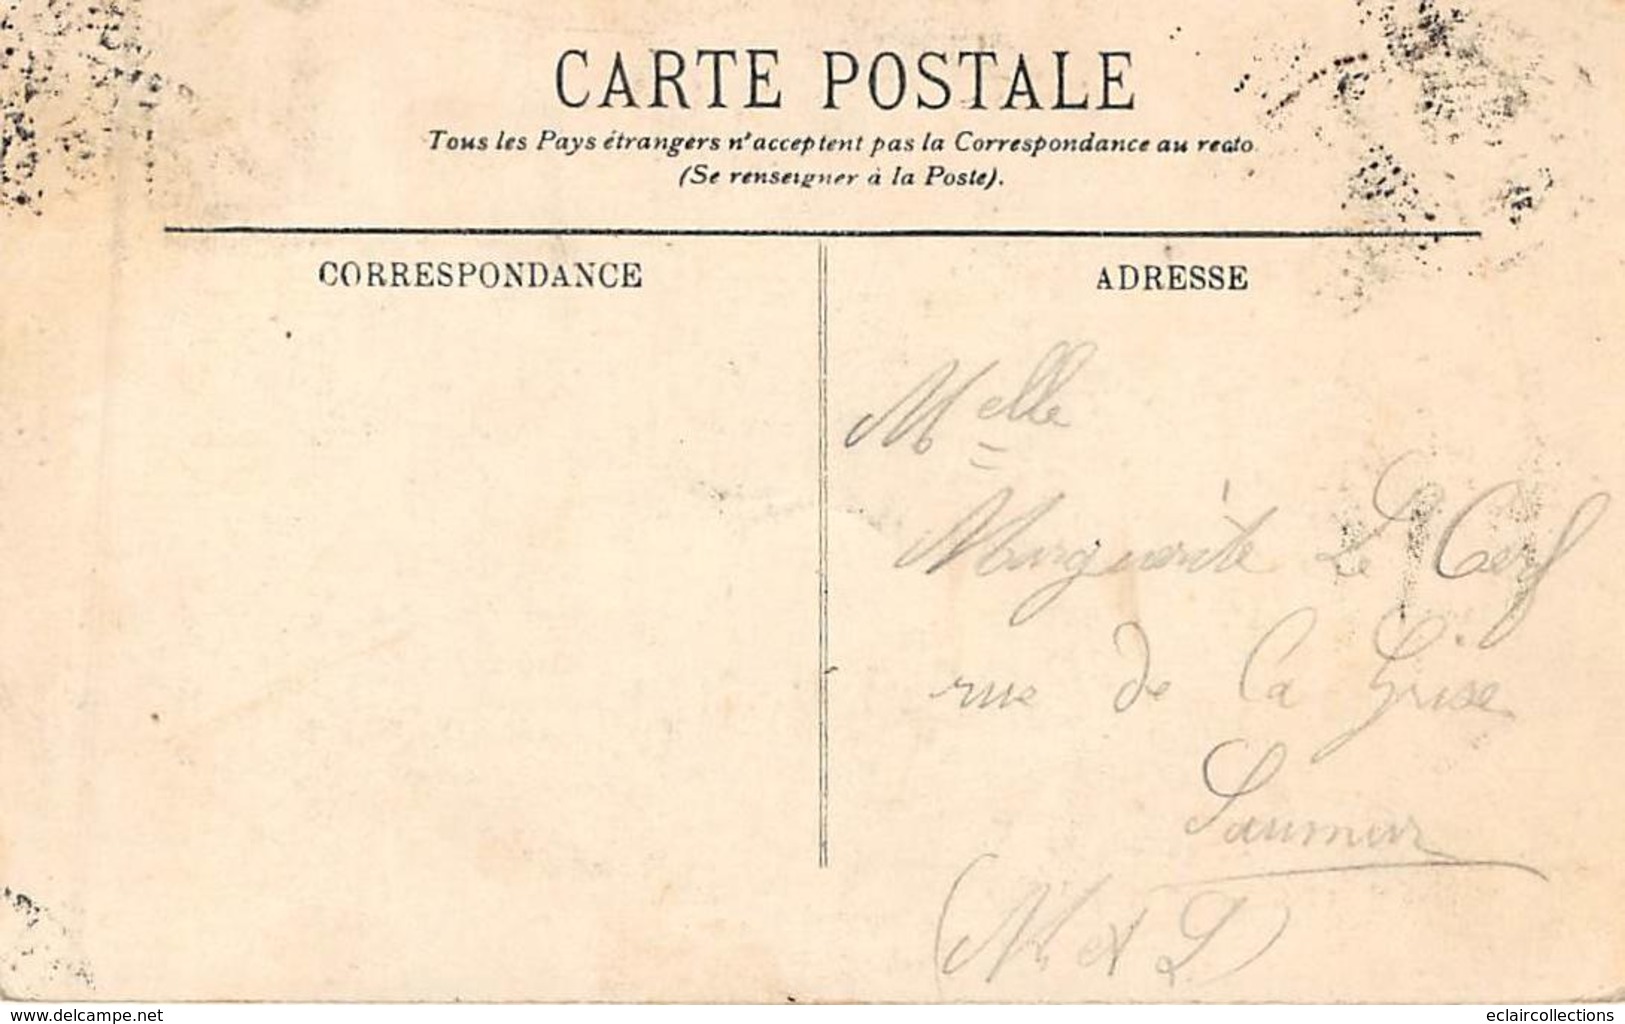 CARTE POSTALE
Tous les Pays étrangers n'acceptent pas la Correspondance au recto
(Se renseigner à la Poste).
CORRESPONDANCE
ADRESSE
Melle
Marguerite Le Cerf
rue de la Grise
Saumur
(M et L)
www.delcampe.net
eclaircollections